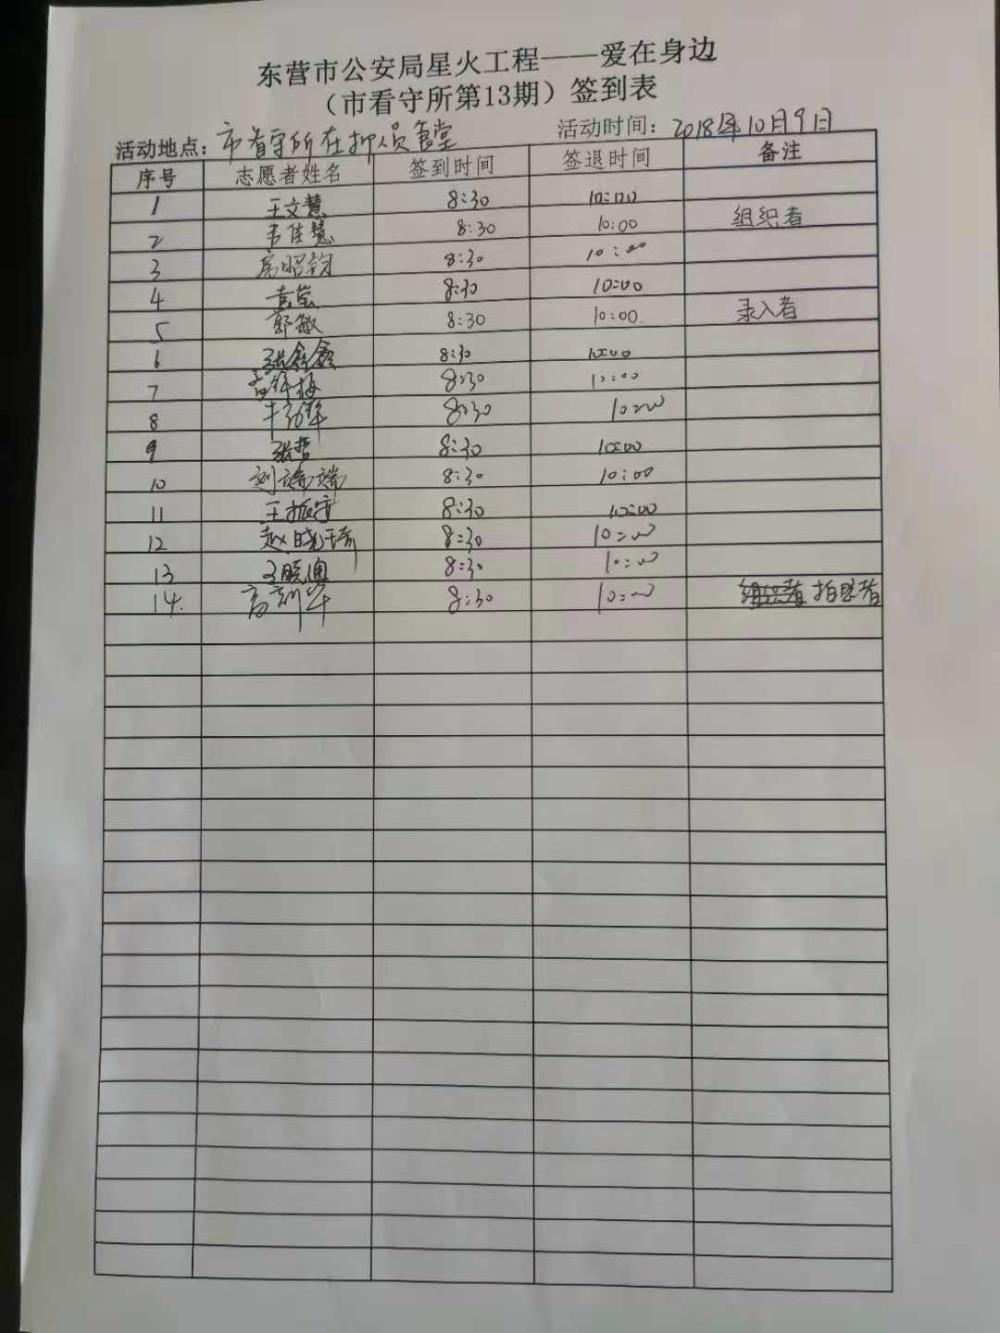 东营市公安局星火工程——爱在身边
（市看守所第13期）签到表
活动地点：市看守所在押人员食堂 活动时间：2018年10月9日
序号 志愿者姓名 签到时间 签退时间 备注
1 王文慧 8:30 10:00
2 韦佳慧 8:30 10:00 组织者
3 8:30 10:00
4 袁莹 8:30 10:00
5 郭敏 8:30 10:00 录入者
6 张鑫鑫 8:30 10:00
7 8:30 10:00
8 8:30 10:00
9 张哲 8:30 10:00
10 刘端端 8:30 10:00
11 王振宇 8:30 10:00
12 赵晓琦 8:30 10:00
13 8:30 10:00
14. 8:30 10:00 组织者 拍照者